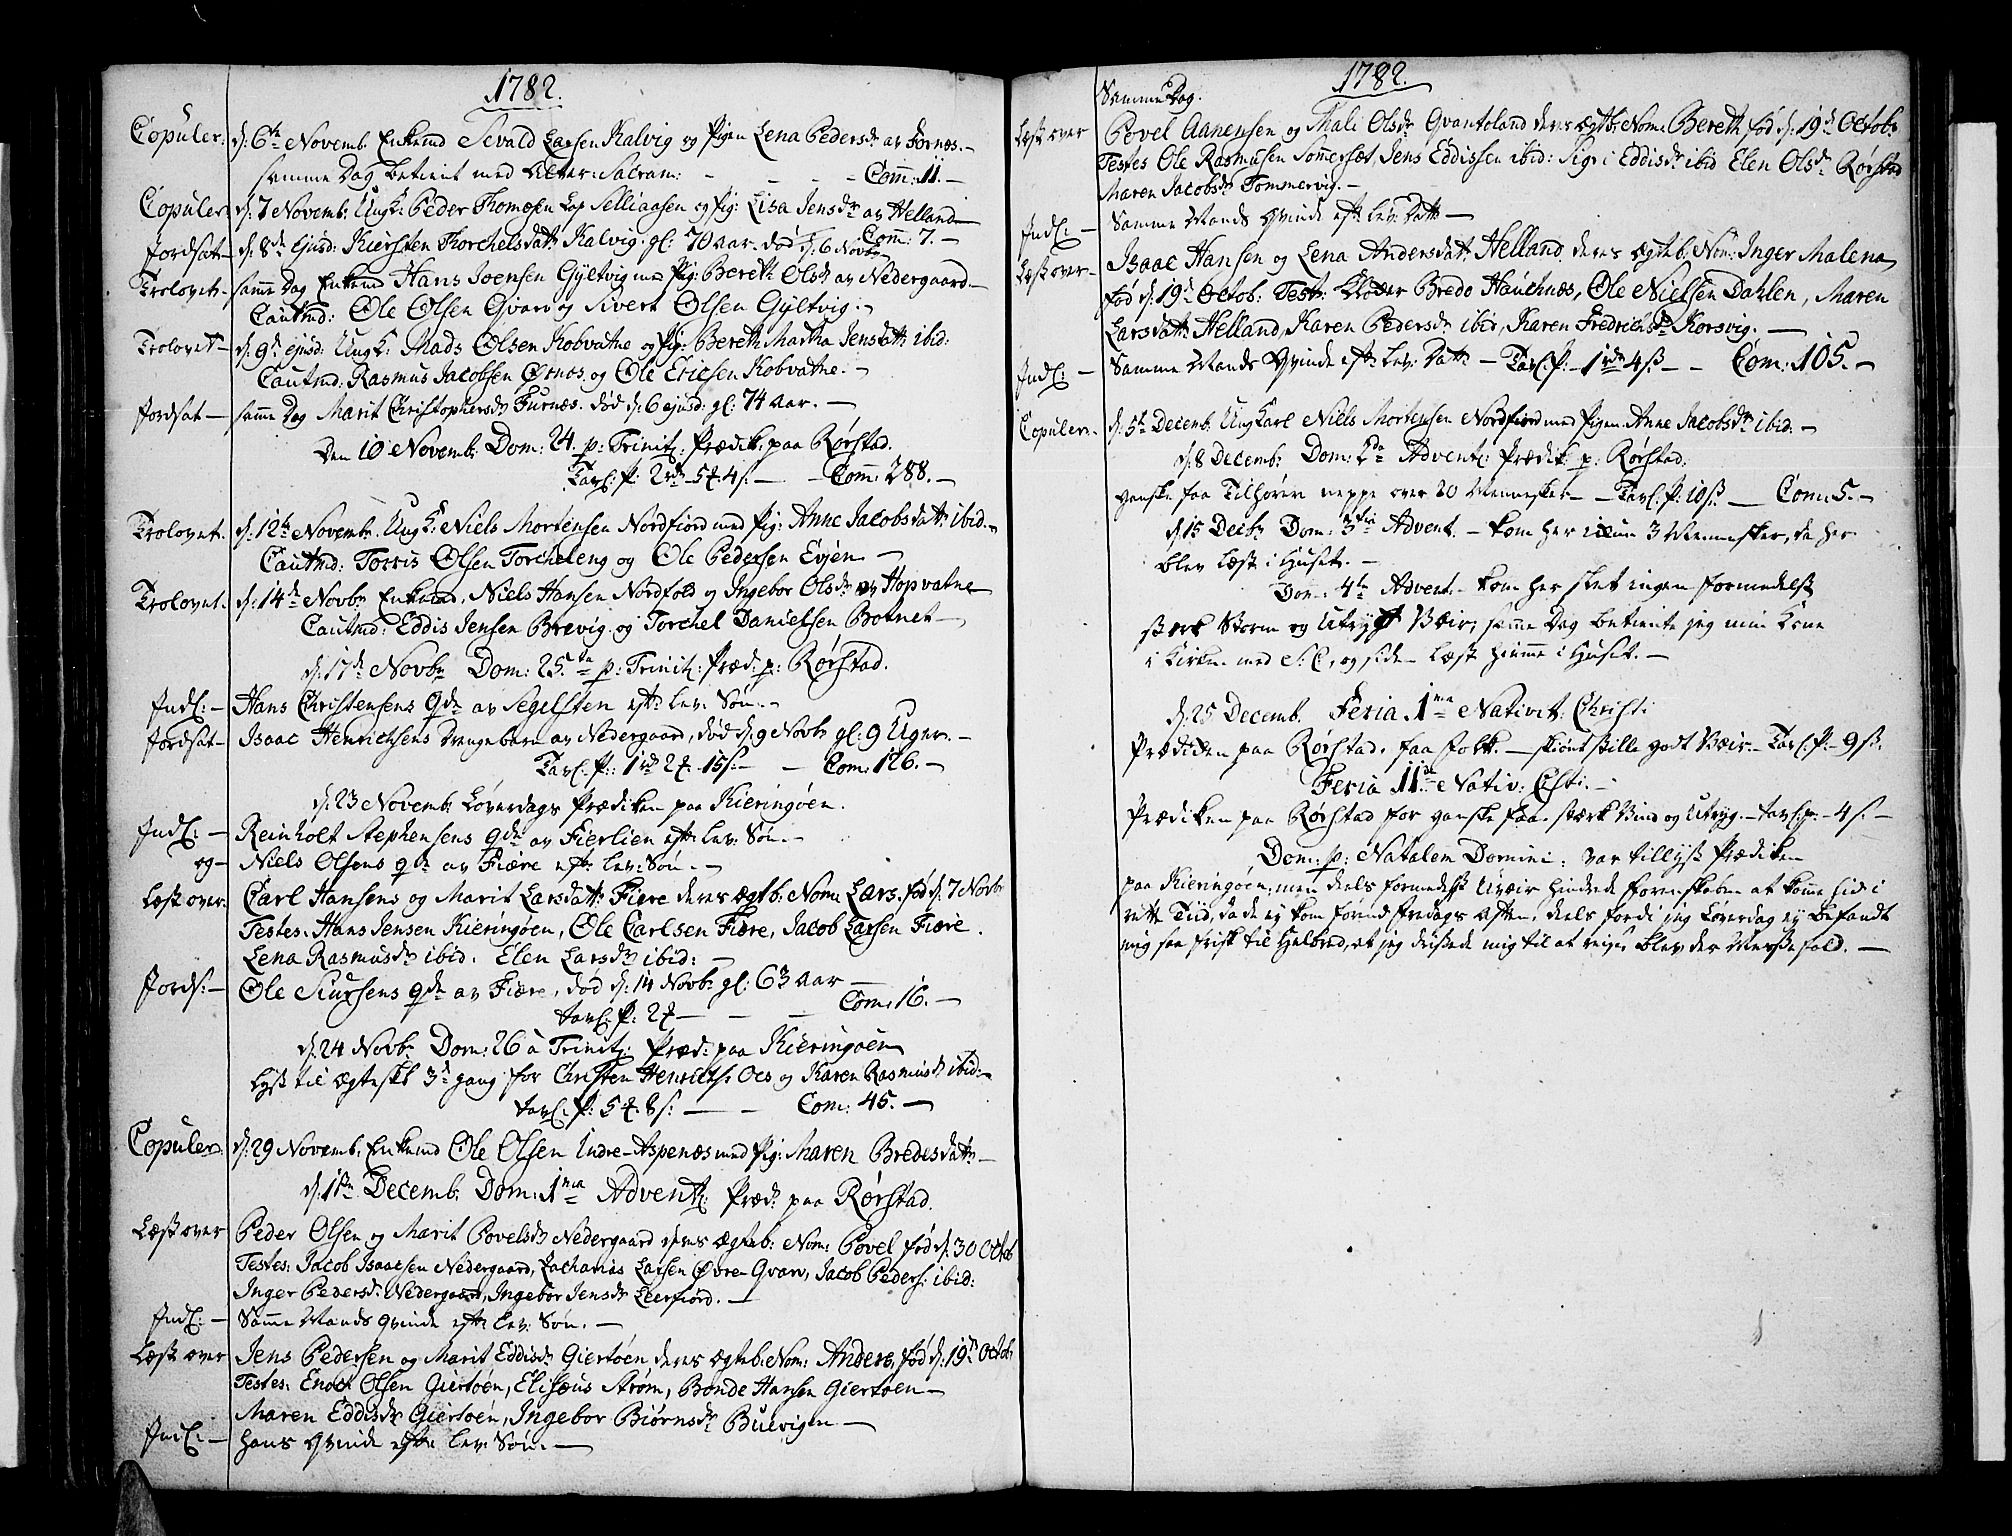 1782.
Copuler. d: 6te Novemb. Enkemd Sevald Larsen Kalvig og Pigen Lena Pedersdr av Fornæs.
samme Dag betient med Alter: Sacram: - - - - Com̄: 11. -
Copuler. d: 7 Novemb: Ungk: Peder Thomesen Lap Selliaasen og Pig: Lisa Jensdtr av Helland
Com̄: 7. -
Jordsat - d: 8de Ejusd: Kiersten Thorchelsdatt: Kalvig. gl: 70 Aar. død d: 6 Novbr
Trolovet - samme Dag Enkemd Hans Joensen Gyltvig med Pig: Bereth Olsdr av Nedergaard -
Cautmd: Ole Olsen Qvarv og Sivert Olsen Gyltvig. -
Trolovet - d: 9de ejusd: Ungk: Mads Olsen Kobvatne og Pig: Bereth Martha Jensdatt: ibid:
Cautmd: Rasmus Jacobsen Ørnes og Ole Ericsen Kobvatne. -
Jordsat - samme Dag Marit Christophersdr Furnæs. død d: 6 ejusd: gl: 74 Aar. -
Den 10 Novemb: Dom: 24. p: Trinit: Prædik: paa Rørstad.
Tavl: P: 2rdr 5 4. 4 s. - - Com̄: 288. -
Trolovet. d: 12te Novembr. Ungk: Niels Mortensen Nordfiord med Pig: Anne Jacobsdatt: ibid: -
Cautmd: Torris Olsen Torcheleng og Ole Pedersen Evjen. -
Trolovet. d: 14de Novbr Enkemd. Niels Hansen Nordfold og Ingebor Olsdr av Hopvatne
Cautmd: Eddis Jensen Brevig og Torchel Danielsen Botnet -
d: 17de Novbr Dom: 25.ta p: Trinit: Præd: p: Rørstad.
Indl: - Hans Christensens Qde av Segelsten efter lev: Søn. -
Jordsat - Isaac Henrichsens Drengebarn av Nedergaard, død d: 9 Novbr gl: 9 Uger. -
Tavl. P.: 1rd 2 4. 15 s. - - Com: 126. -
d: 23 Novemb: Løverdags Prædiken paa Kieringøen.
Indl: - Reinholt Stephensens qde av Fierlien efter lev: Søn. -
og - Niels Olsens qde av Fiære efter lev: Søn. -
Læst over. Carl Hansens og Marit Larsdatt: Fiære deres ægtb: Nom: Lars. født d: 7 Novbr
Testes. Hans Jensen Kieringøen, Ole Carlsen Fiære, Jacob Larsen Fiære.
Lena Rasmusdr ibid. Elen Larsdr ibid: -
Jords: - Ole Siursens qde av Fiære, død d: 14 Novbr gl: 63 Aar -
Tavl. P: 2 4 - - - Com: 16. -
d: 24 Novbr Dom: 26 a Trinit: Præd: paa Kieringøen
Lyst til Ægteskb 3de gang for Christen Henrichs: Oes og Karen Rasmusdr ibid: -
Tavl. P: 5 4. 8 s: - - Com: 45. -
Copuler. d: 29 Novemb. Enkemd Ole Olsen Indre-Aspenæs med Pig: Maren Bredesdatt: -
d: 1ste Decemb: Dom: 1ma Advent: Præd: paa Rørstad.
Læst over Peder Olsen og Marit Povelsdr Nedergaard deres ægteb: Nom: Povel født d: 30 Octob
Testes: Jacob Isaacsen Nedergaard, Zacharias Larsen Øvre Qvarv, Jacob Peders: ibid:
Inger Pedersdr Nedergaard, Ingebor Jensdr Leerfiord. -
Indl: - Samme Mands qvinde efter lev: Søn. -
Læst over Jens Pedersen og Marit Eddisdr Giertøen deres ægteb: Nom: Anders, født d: 19de Octob
Testes. Enoch Olsen Giertøen, Elisæus Strøm, Bonde Hansen Giertøen -
Maren Eddisdr Giertøen, Ingebor Biørnsdr Buevigen -
Indl: - Hans Qvinde efter lev: Søn. -
1782.
Samme Dag.
Læst over Povel Aanensen og Mali Olsdr Qvantoland deres ægtb: Nom: Bereth fød d: 19de Octobr
Testes Ole Rasmusen Sommerset, Jens Eddissen ibid: Sigri Eddisdr ibid Elen Olsdr Rørstad
Maren Jacobsdr Tommervig. -
Indl: - Samme Mands Qvinde efter lev: Datter -
Læst over - Isaac Hansen og Lena Andersdatt: Helland, deres ægteb: Nom: Inger Malena
fød d: 19de Octob: Test: Bredo Hauchnæs, Ole Nielsen Dahlen, Maren
Larsdatt: Helland, Karen Pedersdr ibid, Karen Fredrichsdr Korsvig. -
Indl: - Samme Mands Qvinde efter lev: Datter - Tavl: P: - 1rdr 4 s. - - Com: 105. -
Copuler. d: 5te Decemb. Ungkarl Niels Mortensen Nordfiord med Pigen Anne Jacobsdr ibid: -
d: 8 Decemb: Dom: 2da Advent: Prædik: p: Rørstad:
ganske faa Tilhører neppe over 20 Mennesker - - Tavl: P: 10 s - Com: 5. -
d: 15 Decbr Dom: 3tia Advent. - kom her icun 3 Mennesker, da her
blev læst i Huset. -
Dom: 4ta Advent. - kom her slet ingen formedelst
sterk Storm og Utrygt Veir, samme Dag betiente jeg min Kone
i Kirken med S: C, og siden læst hiemme i Huset. -
d: 25 Decemb. Feria 1ma Nativit: Christi
Prædiken paa Rørstad. faa Folk - skiønt stille godt Veir. - Tavl: P: - 9 s.
Feria IIda Nativ: Chsti. -
Prædiken paa Rørstad for ganske faa. stærk Vind og Utryg. - tavl: p: - 4 s. -
Dom: p: Natalem Domini: var tillyst Prædiken
paa Kieringøen: men deels formedelst Uveir hindrede Forenskaben at komme hid i
rette Tiid, da de ey kom førend Fredags Aften, deels fordi jeg Løverdag ey befandt
mig saa frisk til Helbred, at jeg dristede mig til at reyse blev der Messefald. -